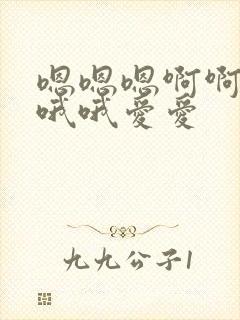 嗯嗯嗯啊啊
哦哦爱爱
九九公子1